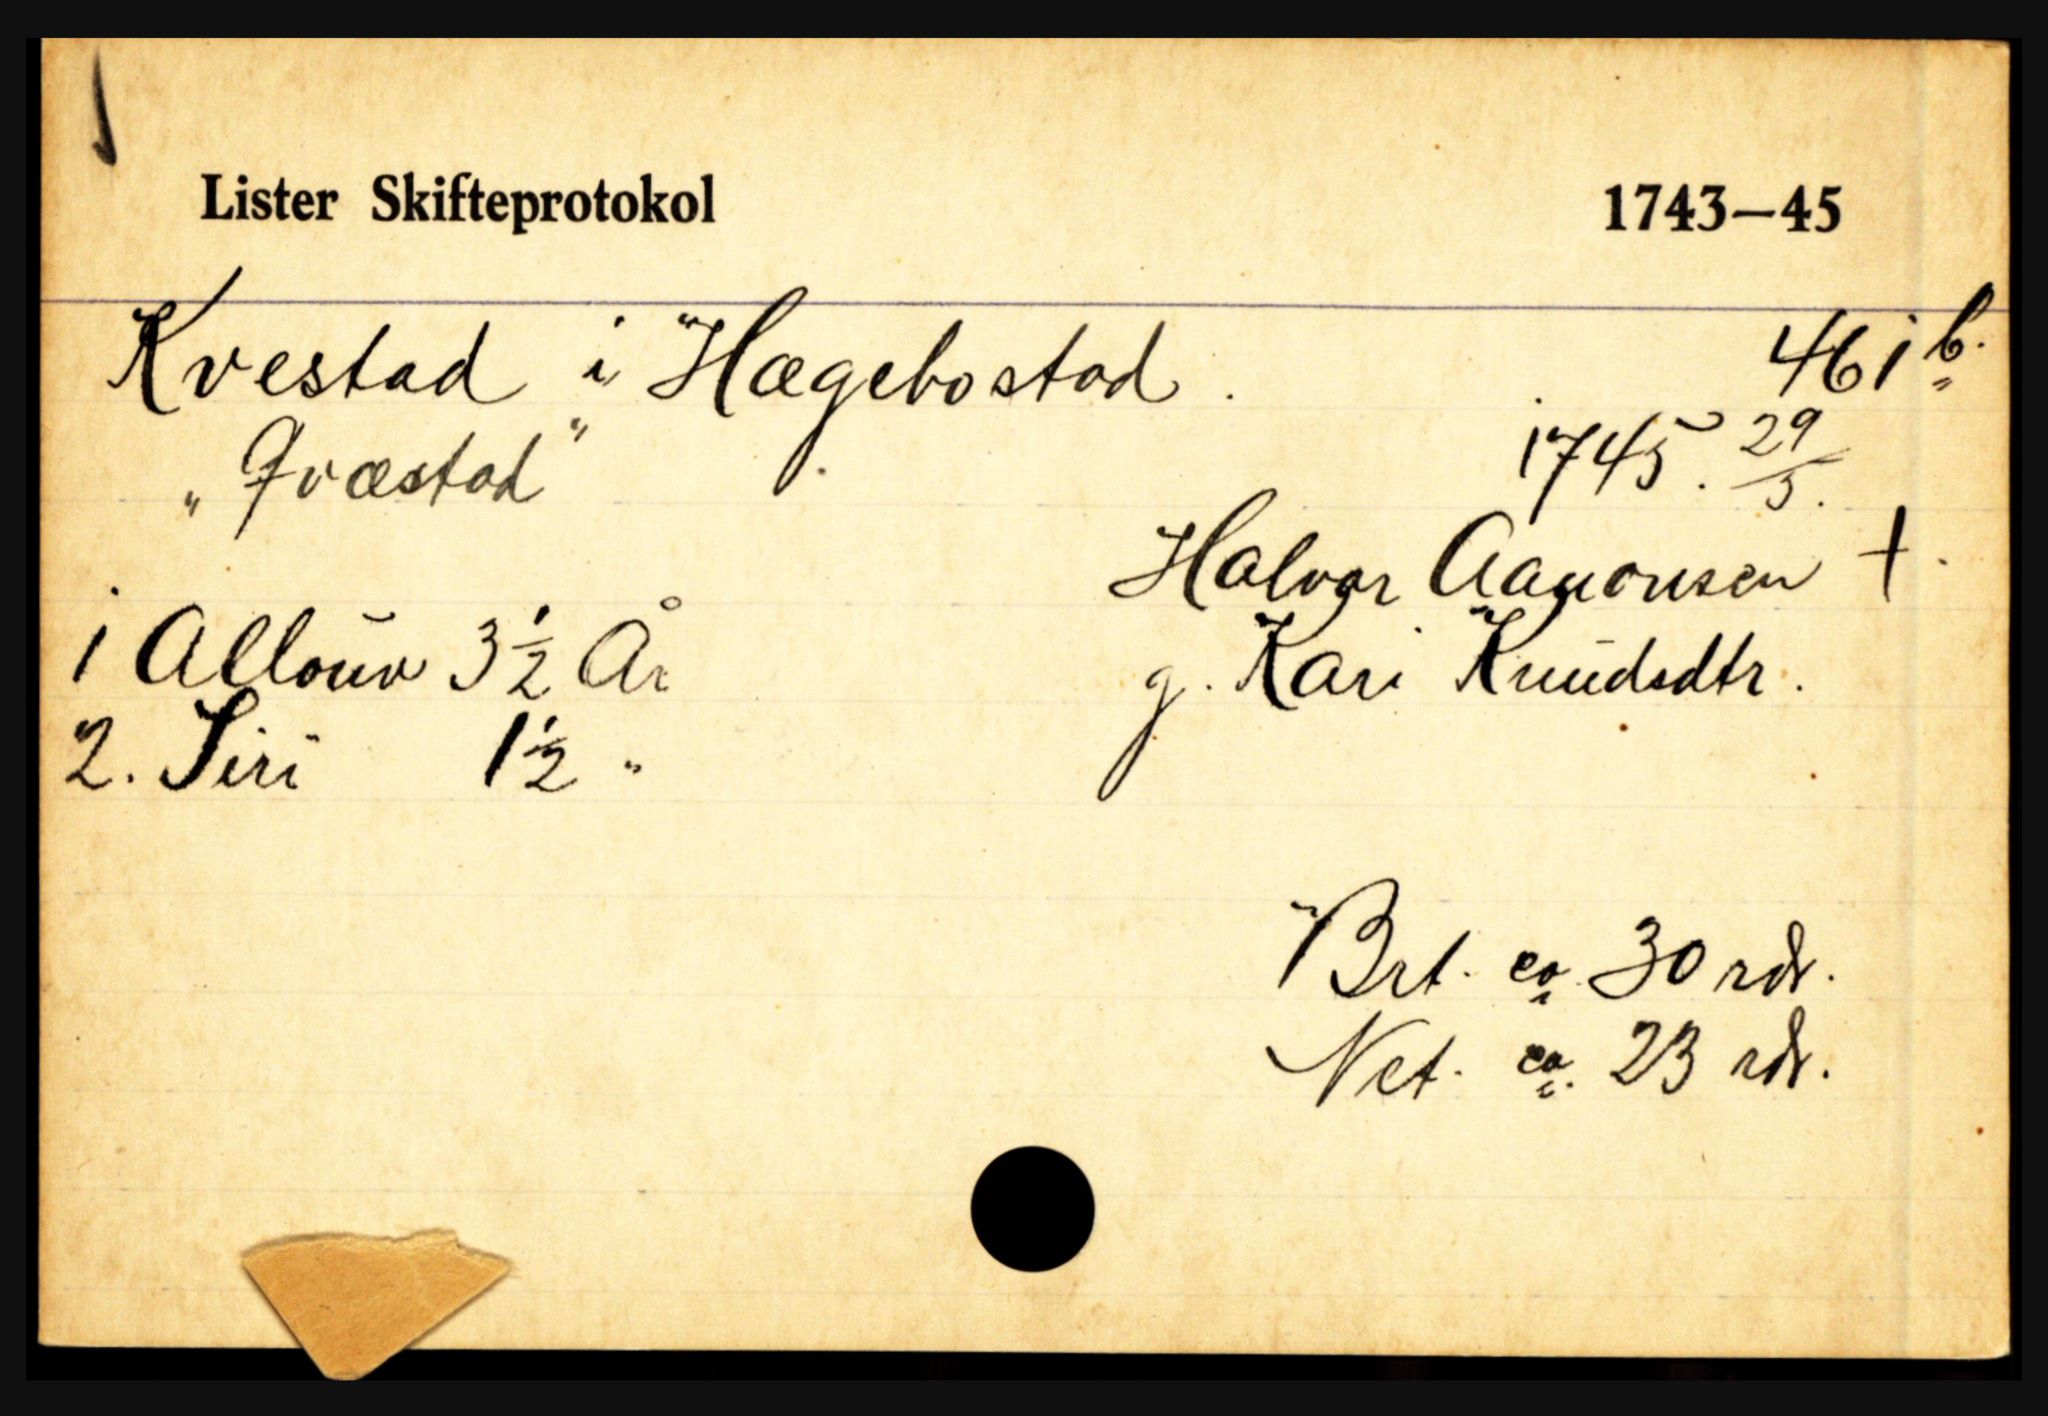 Lister Skifteprotokol 1743—45
Kvestad i Hægebostad. 461 b.
"Qvæstad" 1745. 29/5.
Halvor Aanonsen †.
1 Allouv 3½ År g. Kari Knudsdtr.
2. Siri 1½ "
Brt. ca. 30 rdr.
Net. ca. 23 rdr.